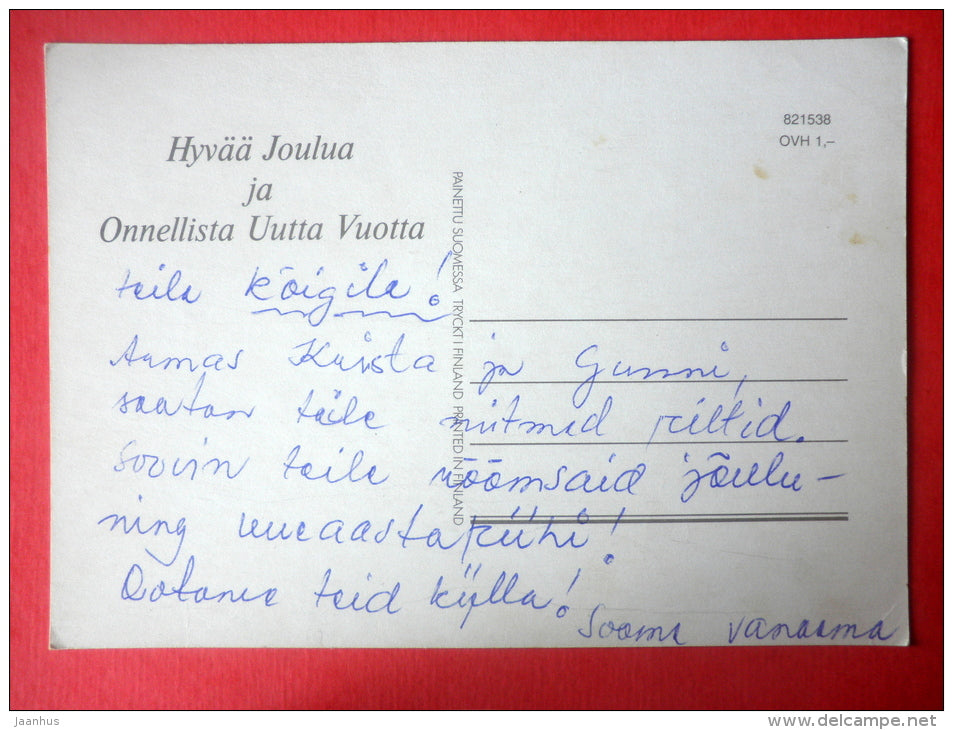 Hyvää Joulua
ja
Onnellista Uutta Vuotta
821538
OVH 1,–
PAINETTU SUOMESSA TRYCKT I FINLAND PRINTED IN FINLAND
teile kõigile!
Armas Krista ja Gunni,
saatan teile mitmed piltid.
Soovin teile rõõmsaid jõulu-
ning uueaastapühi!
Ootame teid külla!
Soome vanaema
jaanhus
www.delcampe.net